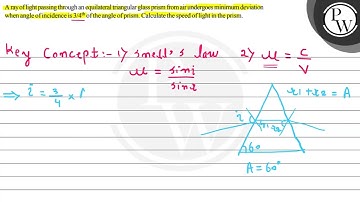 A ray of light passing through an equilateral triangular glass prism from air undergoes minimum deviation
when angle of incidence is 3/4th of the angle of prism. Calculate the speed of light in the prism.
Key Concept:- 1) snell's law 2) μ = c/v
μ = sini/sinr
⇒ i = 3/4 × P
r1 + r2 = A
i
r1 r2
60°
A = 60°